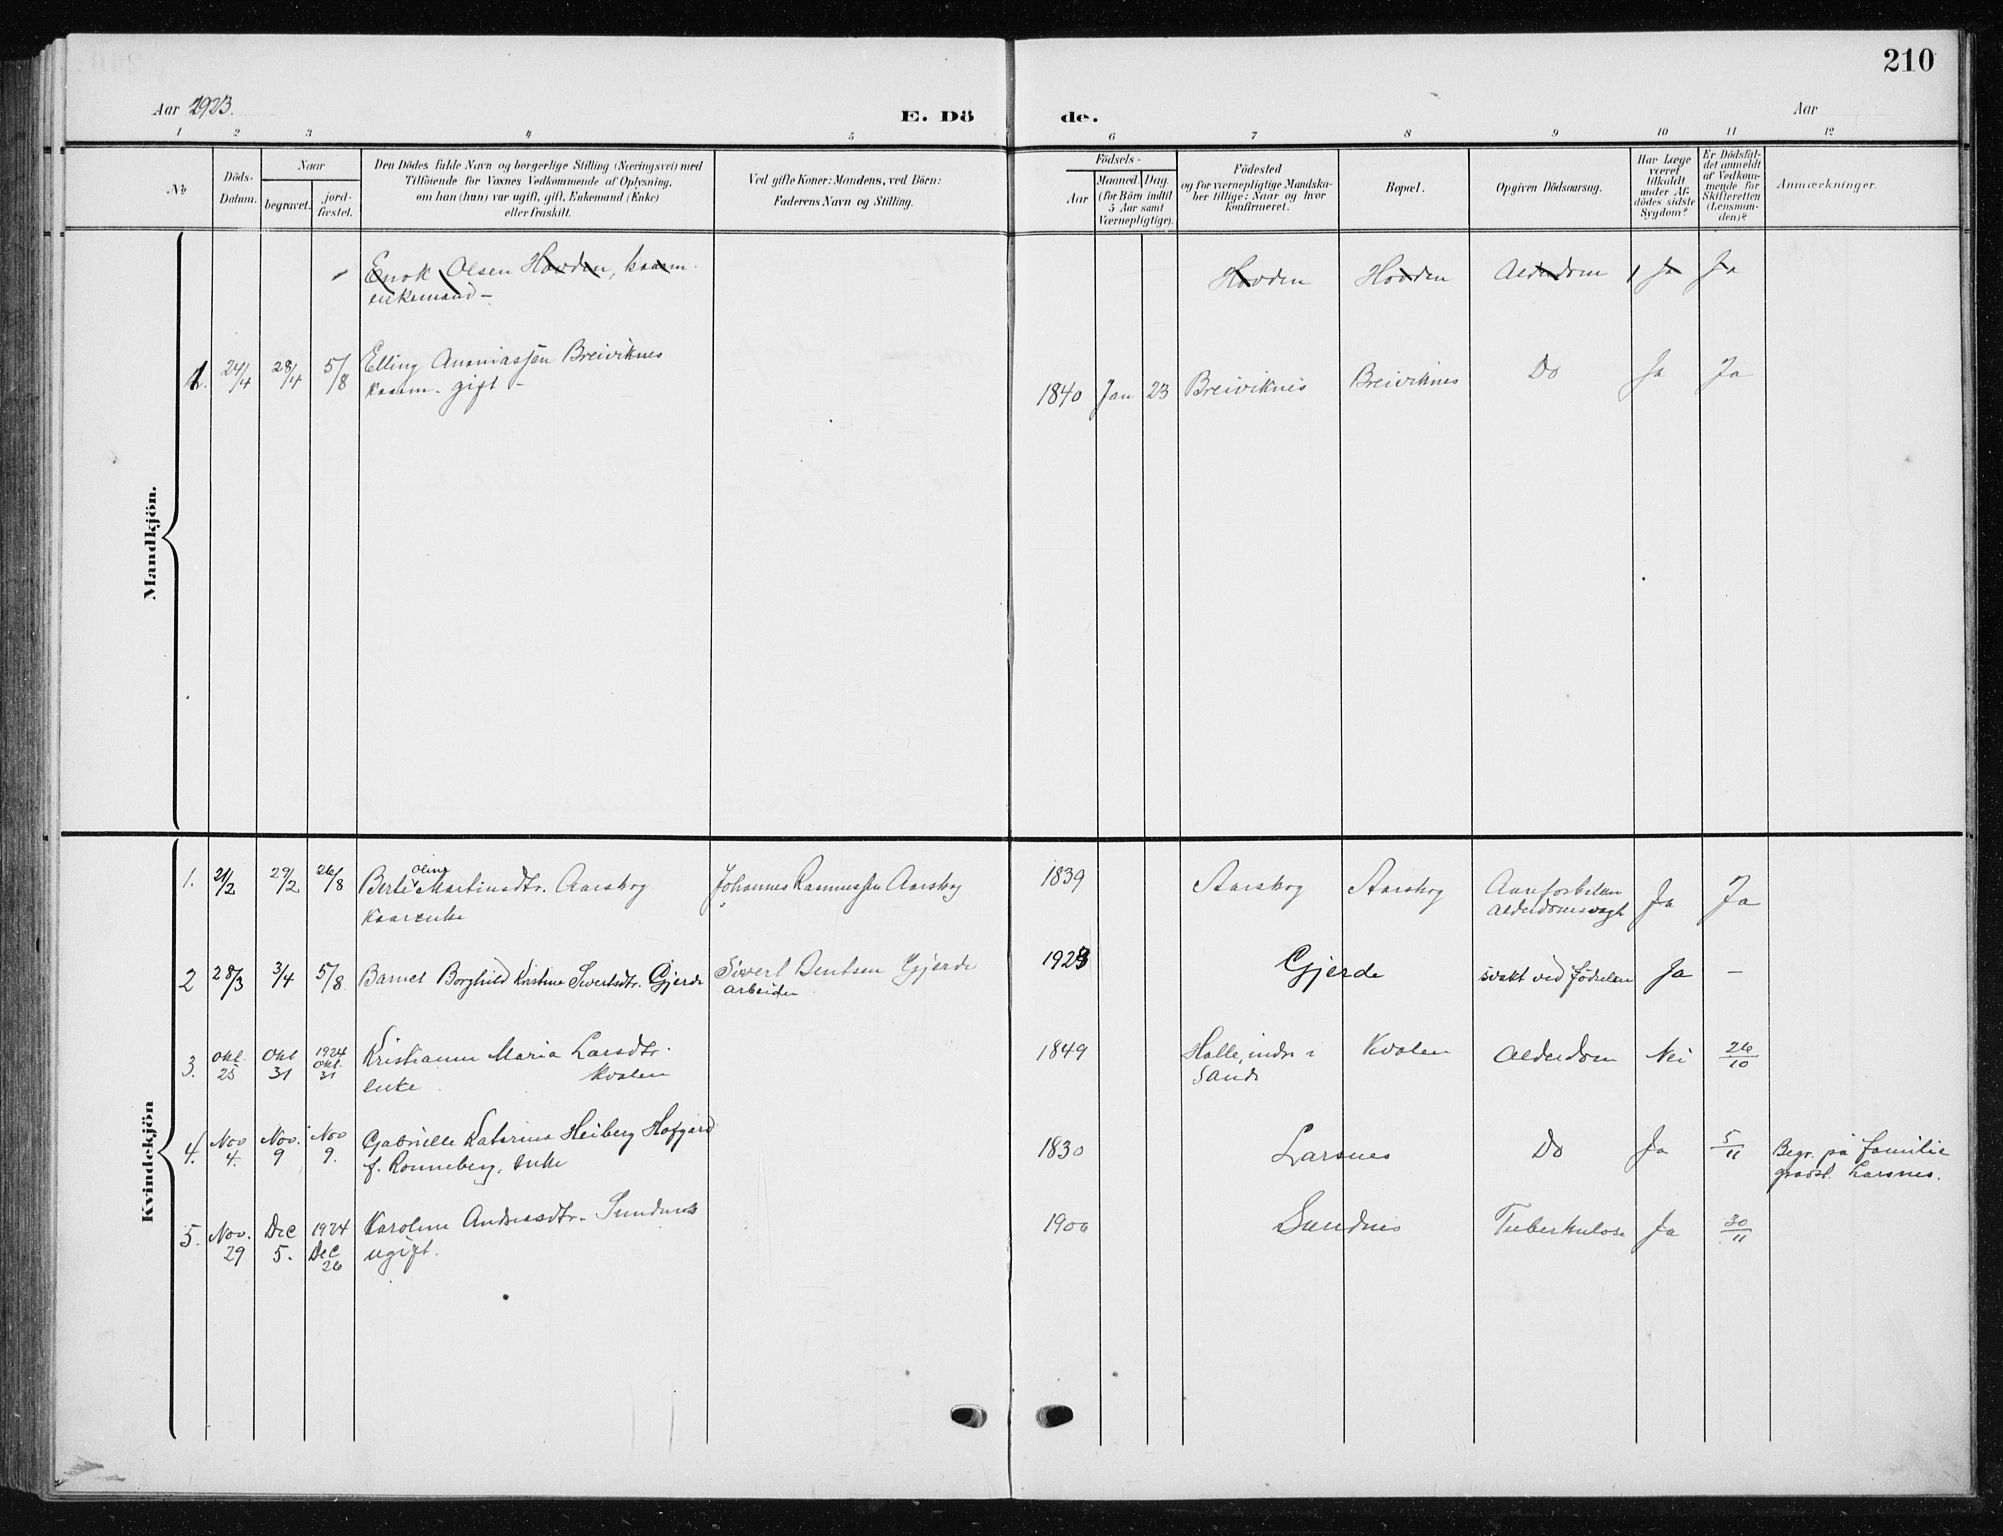 210
Aar 1923.
E. Dö de.
Aar
1 2 3 4 5 6 7 8 9 10 11 12
No
Döds-
Datum.
Naar
begravet.
jord-
fæstet.
Den Dödes fulde Navn og borgerlige Stilling (Næringsvei) med
Tilföiende for Voxnes Vedkommende af Oplysning,
om han (hun) var ugift, gift, Enkemand (Enke)
eller fraskilt.
Ved gifte Koner: Mandens, ved Börn:
Faderens Navn og Stilling.
Födsels-
Aar
Maaned. Dag.
(for Börn indtil
5 Aar samt
Værnepligtige).
Födested
og for værnepligtige Mandska-
ber tillige: Naar og hvor
konfirmeret.
Bopæl.
Opgiven Dödsaarsag.
Har Læge
været
tilkaldt
under Af-
dödes sidste
Sygdom?
Er Dödsfal-
det anmeldt
af Vedkom-
mende for
Skifteretten
(Lensman-
den)?
Anmærkninger.
Mandkjön.
Enok Olsen Hovden, kaarm. Hovden Hovden Alderdom Ja Ja
enkemand -
1. 24/4 28/4 5/8 Elling Ananiassen Breiviknes 1840 Jan 23 Breiviknes Breiviknes Do Ja Ja
kaarm. gift -
Kvindekjön
1. 21/2 29/2 26/8 Berte Oline Martinsdtr. Aarskog Johannes Rasmussen Aarskog 1839 Aarskog Aarskog Aareforkalkn Ja Ja
Kaarenke alderdomsvagh
2 28/3 3/4 5/8 Barnet Borghild Kristine Sivertsdtr. Gjerde Sivert Bentsen Gjerde 1923 Gjerde svakt ved fødselen Ja -
arbeider
3. Okt. 25 Okt 31 1924 Okt. 31 Kristianne Maria Larsdtr. 1849 Halle, indre i Kvalen Alderdom Nei 26/10
enke. Kvalen Sande
4. Nov 4. Nov. 9 Nov 9. Gabrielle Katarina Heiberg Hofgård 1830 Larsnes Do Ja 5/11 Begr. på familie
f. Ronneberg, enke gravst. Larsnes.
5. Nov. 29 Dec 5. 1924 Dec 26 Karoline Andreasdtr. Sundnes 1906 Sundnes Tuberkulose Ja 30/11
ugift.